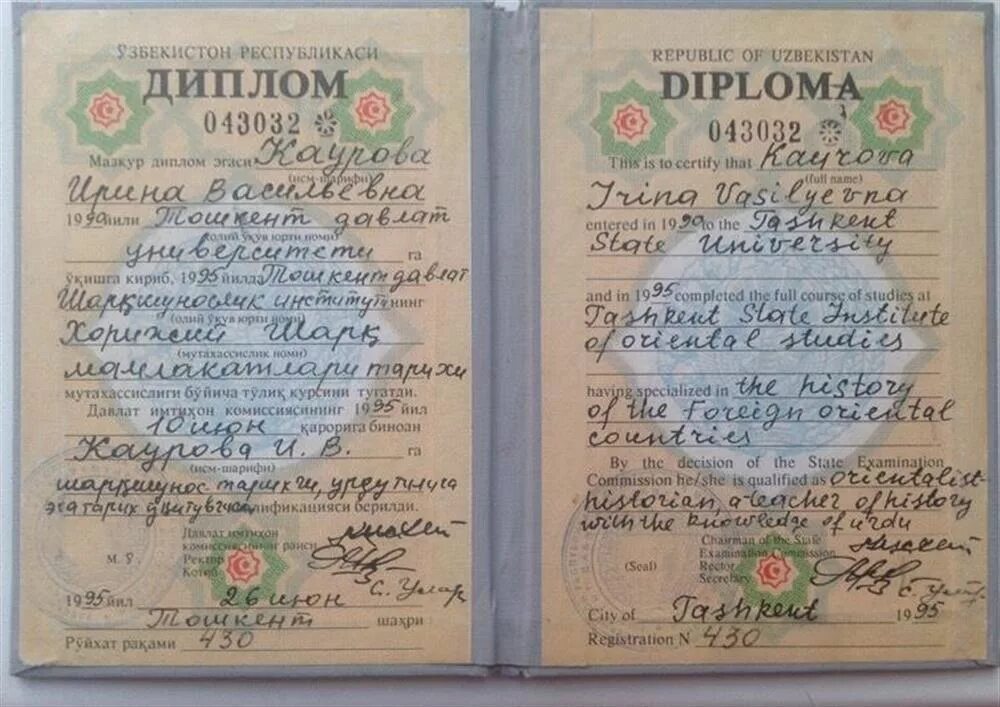 ЎЗБЕКИСТОН РЕСПУБЛИКАСИ
ДИПЛОМ
043032
Мазкур диплом эгаси Каурова
(исм-шарифи)
Ирина Васильевна
1990 йили Тошкент давлат
(олий ўқув юрти номи)
университети га
ўқишга кириб, 1995 йилда Тошкент давлат
Шарқшунослик институти нинг
(олий ўқув юрти номи)
Хорижий Шарқ
(мутахассислик номи)
мамлакатлари тарихи
мутахассислиги бўйича тўлиқ курсини тугатди.
Давлат имтиҳон комиссиясининг 1995 йил
10 июн қарорига биноан
Каурова И. В. га
(исм-шарифи)
шарқшунос тарихчи, урду тилига
эга тарих ўқитувчи квалификацияси берилди.
Давлат имтиҳон
комиссиясининг раиси
М. Ў. Ректор
Котиб
1995 йил 26 июн
Тошкент шаҳри
Рўйхат рақами 430
REPUBLIC OF UZBEKISTAN
DIPLOMA
043032
This is to certify that Kayrova
(full name)
Irina Vasilyevna
entered in 1990 to the Tashkent
State University
and in 1995 completed the full course of studies at
Tashkent State Institute
of oriental studies
having specialized in the history
of the foreign oriental
countries
By the decision of the State Examination
Commission he/she is qualified as orientalist-
historian, a teacher of history
with the knowledge of urdu
Chairman of the State
Examination Commission
(Seal) Rector
Secretary
City of Tashkent 1995
Registration N 430